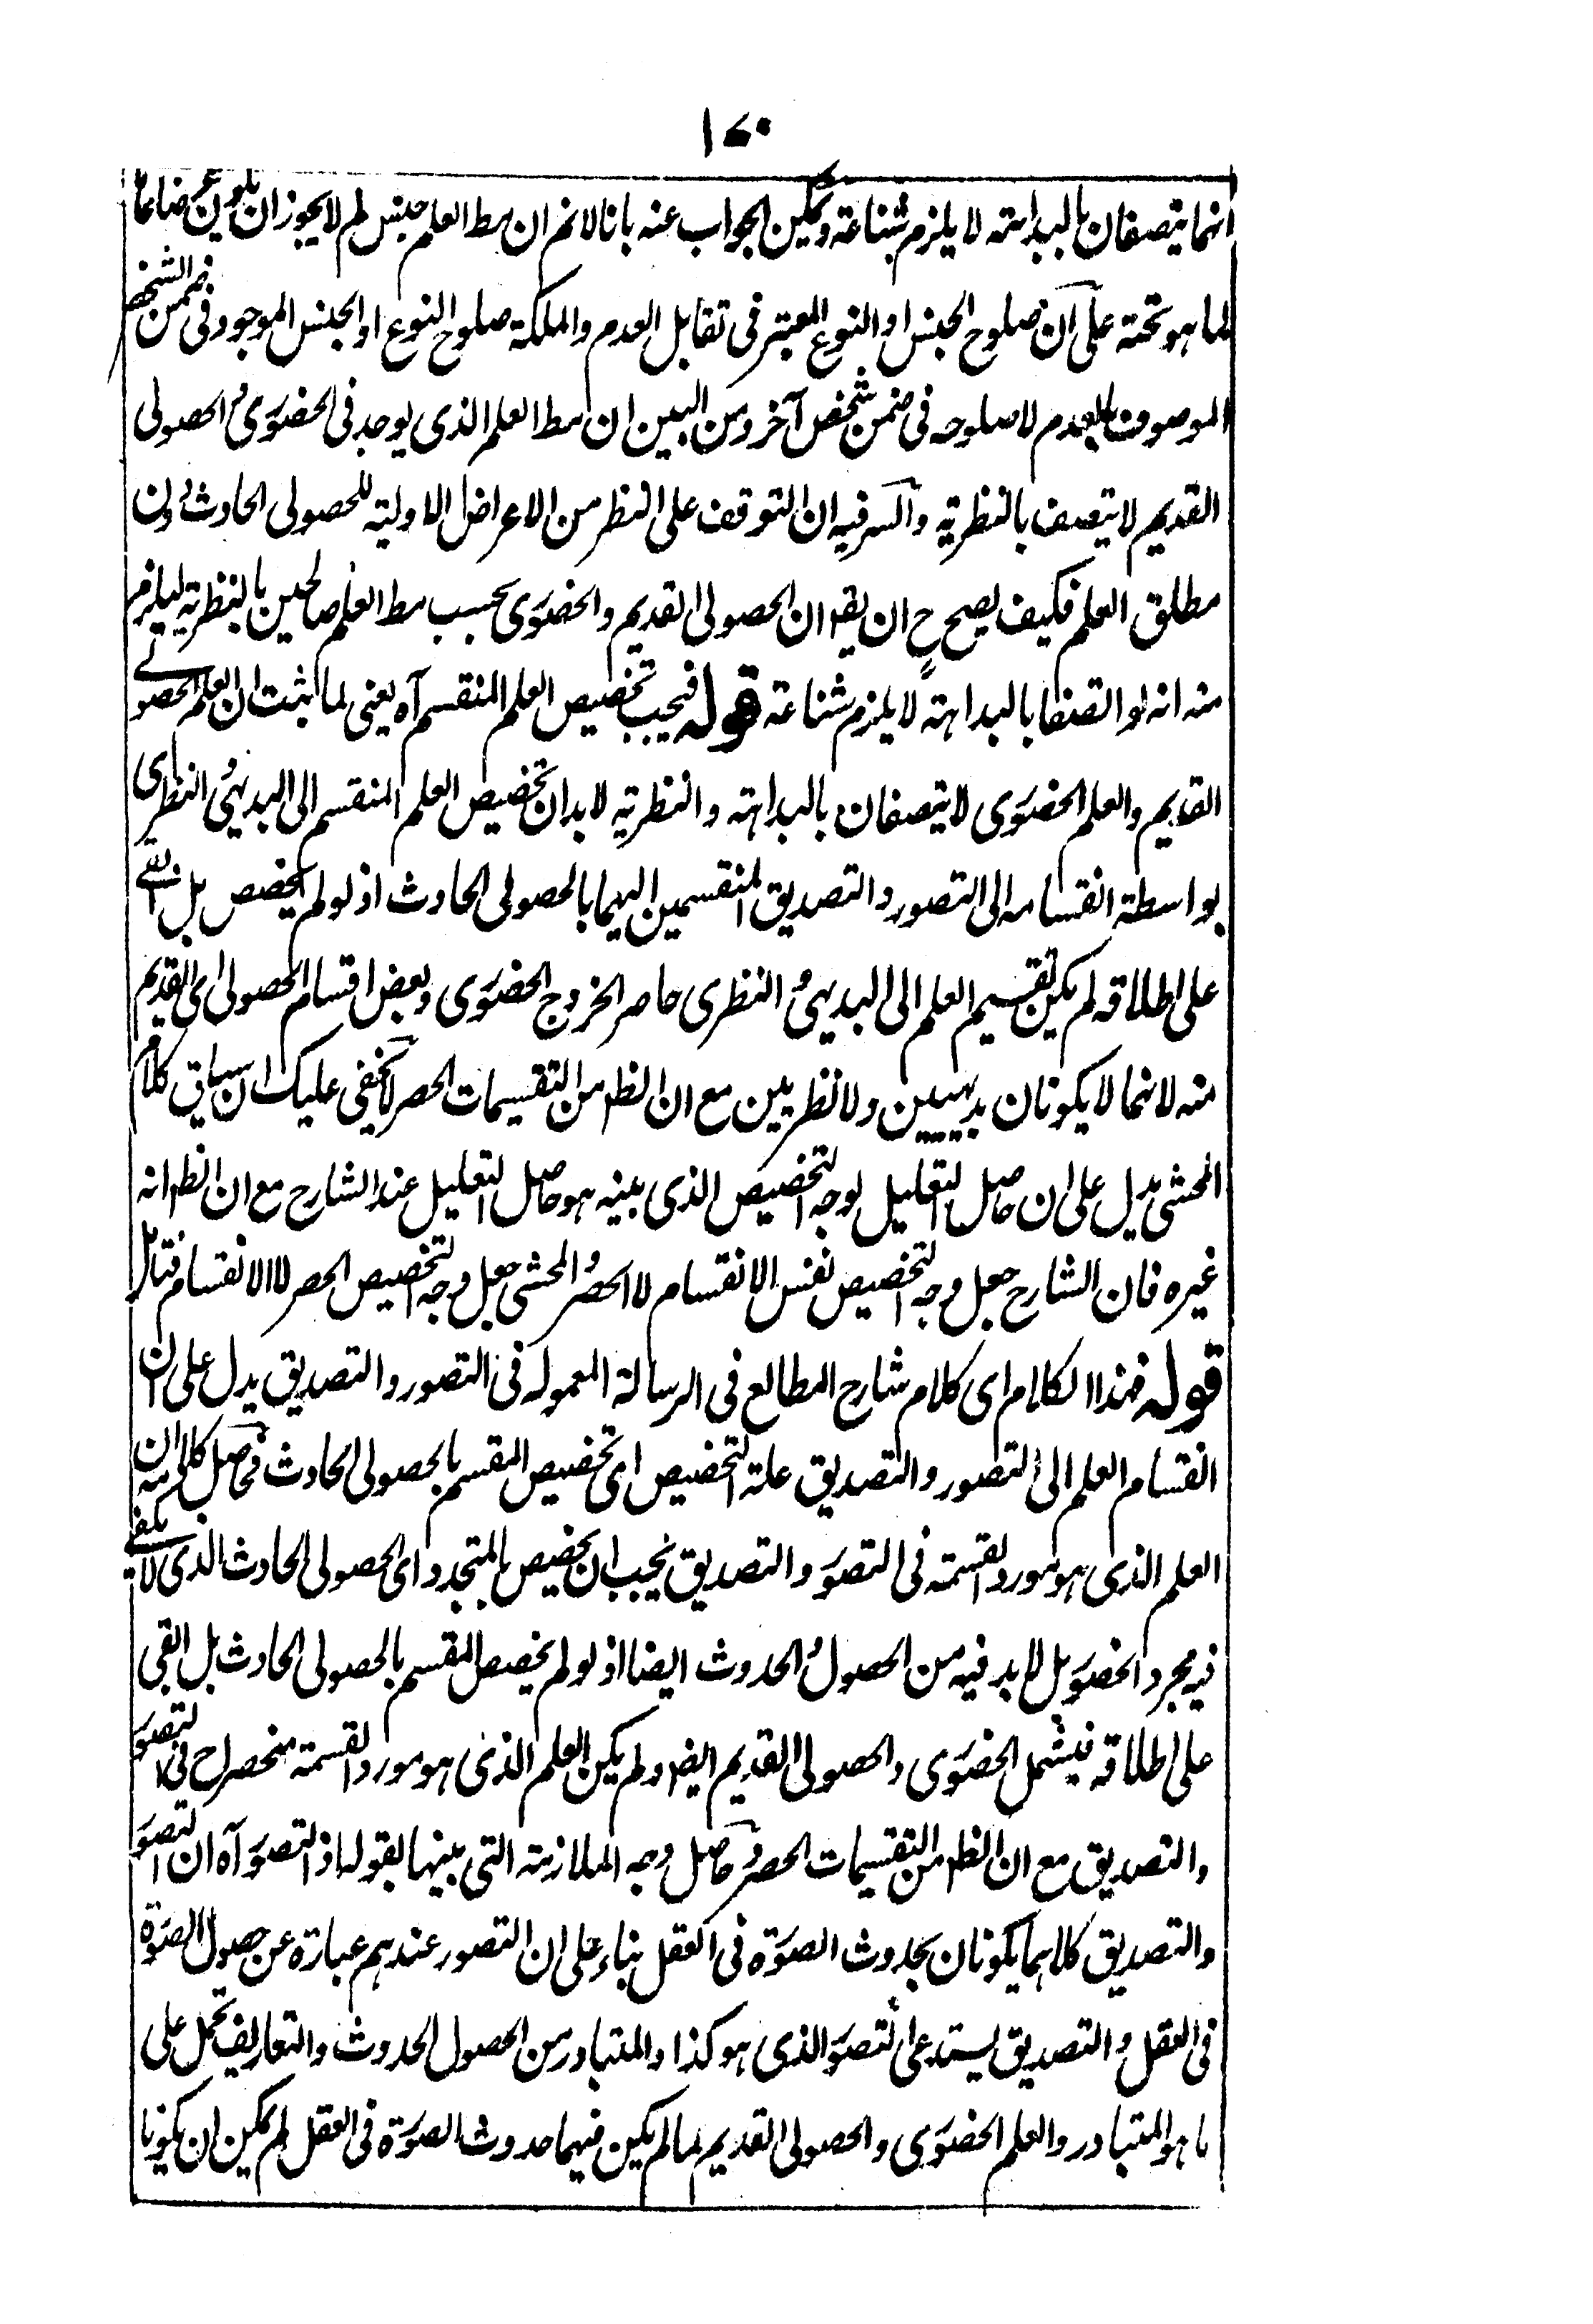 ١٧٠
انهما يتصفان بالبداهة لا يلزم شناعة ويمكن الجواب عنه بانا لا نم ان مط العلم جنس لم لا يجوز ان يكون عرضا عاما
لما هو تحته على ان صلوح الجنس او النوع المعتبر فى تقابل العدم والملكة صلوح النوع او الجنس الموجود فى ضمن الشخص
الموصوف بالعدم لا صلوحه فى ضمن شخص آخر ومن البين ان مط العلم الذى يوجد فى الحضورى والحصولى
القديم لا يتصف بالنظرية والسر فيه ان التوقف على النظر من الاعراض الاولية للحصولى الحادث دون
مطلق العلم فكيف يصح ح ان يقه ان الحصولى القديم والحضورى بحسب مط العلم صالحين بالنظرية ليلزم
منه انه لو اتصفا بالبداهة لا يلزم شناعة قوله فيجب تخصيص العلم المنقسم آه يعنى لما ثبت ان العلم الحصولى
القديم والعلم الحضورى لا يتصفان بالبداهة والنظرية لابد ان تخصيص العلم المنقسم الى البديهى والنظرى
بواسطة انقسامه الى التصور والتصديق المنقسمين اليهما بالحصولى الحادث اذ لو لم يخصص بل القى
على اطلاقه لم يكن تقسيم العلم الى البديهى والنظرى حاصر الخروج الحضورى وبعض اقسام الحصولى اى القديم
منه لانهما لا يكونان بديهيين ولا نظريين مع ان الظه من التقسيمات الحصر لا يخفى عليك ان سياق كلام
المحشى يدل على ان حاصل التعليل لوجه التخصيص الذى بينه هو حاصل التعليل عند الشارح مع ان الظه انه
غيره فان الشارح جعل وجه التخصيص نفس الانقسام لا الحصر والمحشى جعل وجه التخصيص الحصر لا الانقسام فتأمل
قوله فهذا الكلام اى كلام شارح المطالع فى الرسالة المعمولة فى التصور والتصديق يدل على ان
انقسام العلم الى التصور والتصديق علة التخصيص اى تخصيص المقسم بالحصولى الحادث فحاصل كلامه ان
العلم الذى هو مورد القسمة فى التصور والتصديق يجب ان يخصيص بالمتجدد اى الحصولى الحادث الذى لا يكفى
فيه مجرد الحضور بل لابد فيه من الحصول والحدوث ايضا اذ لو لم يخصص المقسم بالحصولى الحادث بل القى
على اطلاقه فيشمل الحضورى والحصولى القديم ايضه ولم يكن العلم الذى هو مورد القسمة منحصرا ح فى التصور
والتصديق مع ان الظه من التقسيمات الحصر وحاصل وجه الملازمة التى بينها بقوله اذ التصور آه ان التصور
والتصديق كلاهما يكونان بحدوث الصورة فى العقل بناء على ان التصور عندهم عبارة عن حصول الصورة
فى العقل والتصديق يستدعى التصور الذى هو كذا والمتبادر من الحصول الحدوث والتعاريف تحمل على
ما هو المتبادر والعلم الحضورى والحصولى القديم لما لم يكن فيهما حدوث الصورة فى العقل لم يمكن ان يكونا